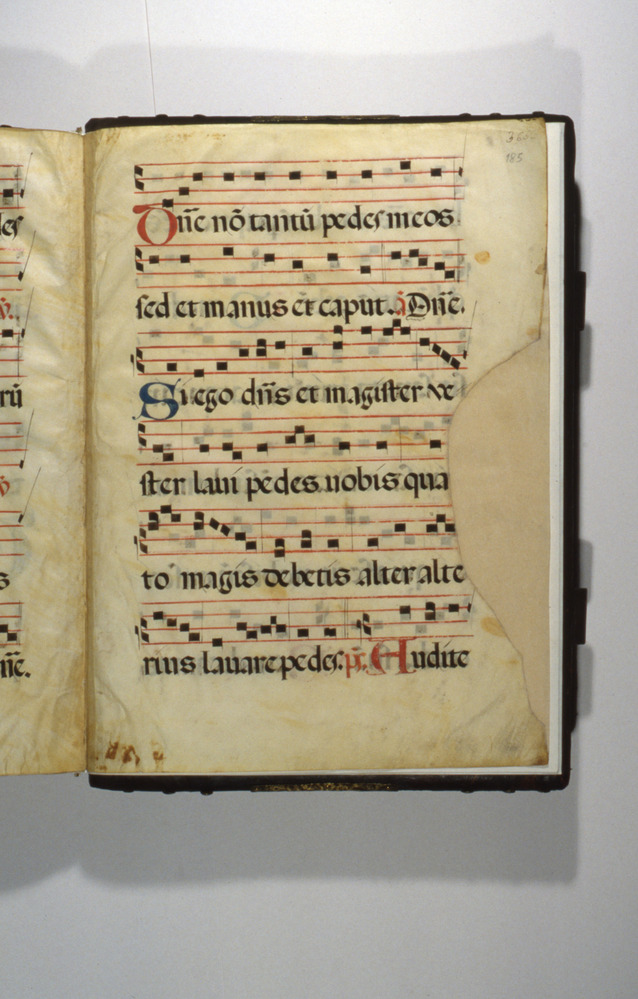 360
185
Dñe nõ tantũ pedes meos
sed et manus et caput. ã Dñe.
Si ego dñs et magister ve
ster laui pedes uobis qua
to magis debetis alter alte
rius lauare pedes. ps. Audite
rũ
ñe.